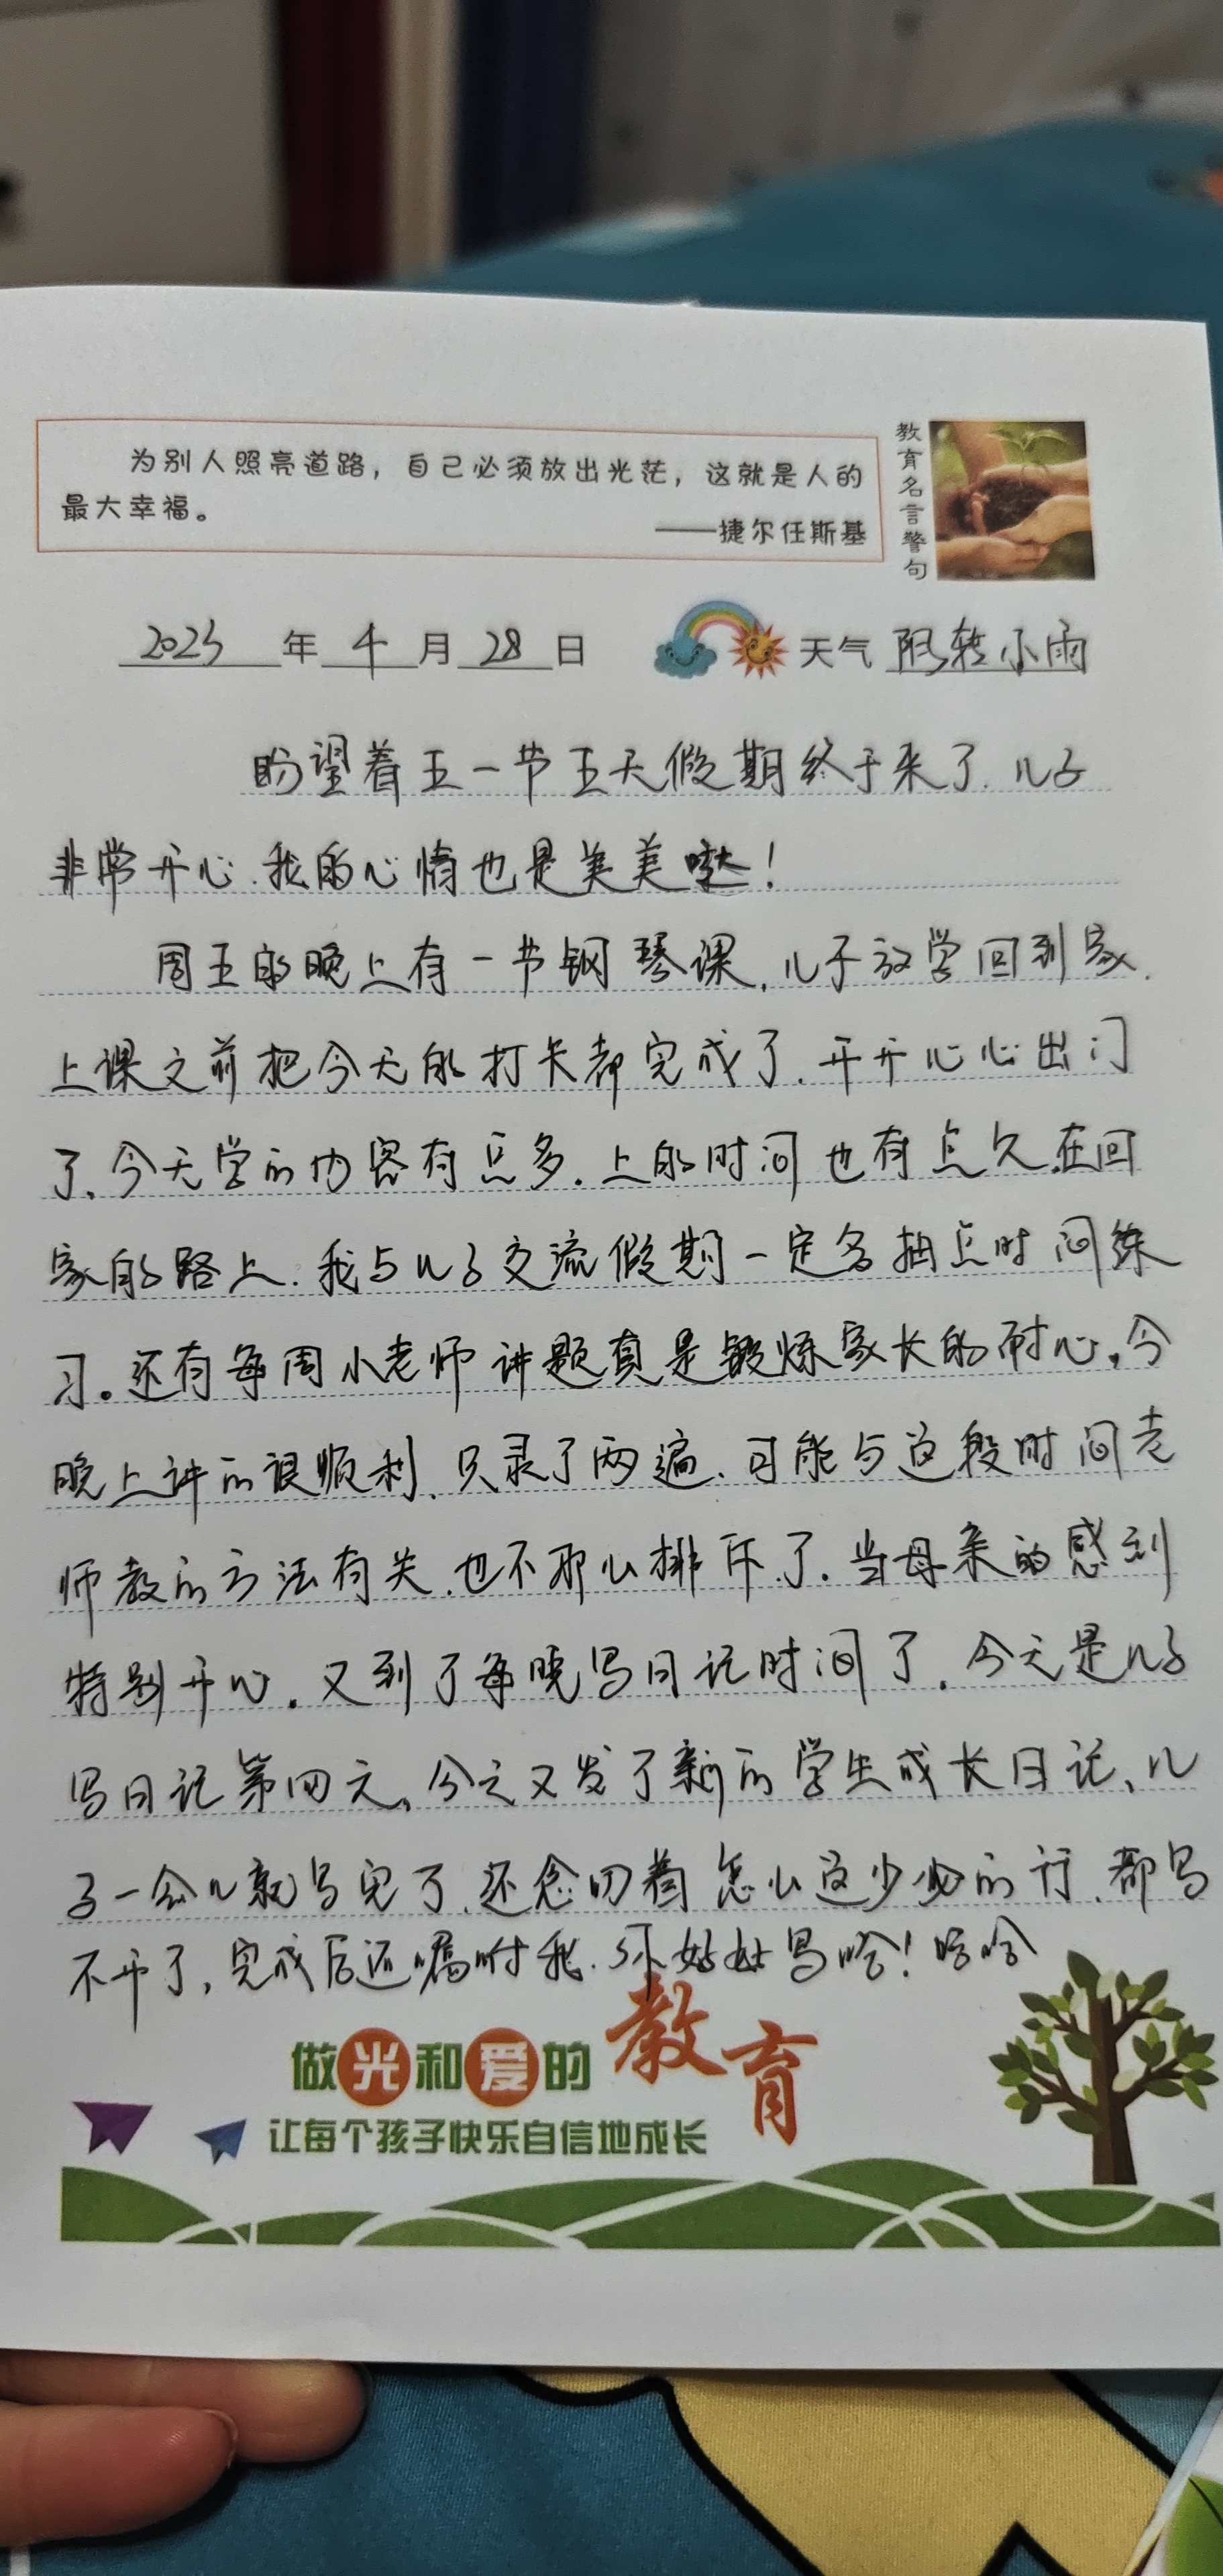 为别人照亮道路，自己必须放出光茫，这就是人的
最大幸福。
——捷尔任斯基
教育名言警句
2023年4月28日 天气 阴转小雨
盼望着五一节五天假期终于来了.儿子
非常开心.我的心情也是美美哒！
周五的晚上有一节钢琴课,儿子放学回到家.
上课之前把今天的打卡都完成了.开开心心出门
了、今天学的内容有点多.上的时间也有点久.在回
家的路上.我与儿子交流假期一定多抽点时间练
习。还有每周小老师讲题真是锻炼家长的耐心,今
晚上讲的很顺利.只录了两遍、可能与这段时间老
师教的方法有关.也不那么排斥了.当母亲的感到
特别开心.又到了每晚写日记时间了.今天是儿子
写日记第四天、今天又发了新的学生成长日记、儿
子一会儿就写完了.还念叨着怎么这少少的行.都写
不开了,完成后还嘱咐我.好好写哈！哈哈
做光和爱的教育
让每个孩子快乐自信地成长